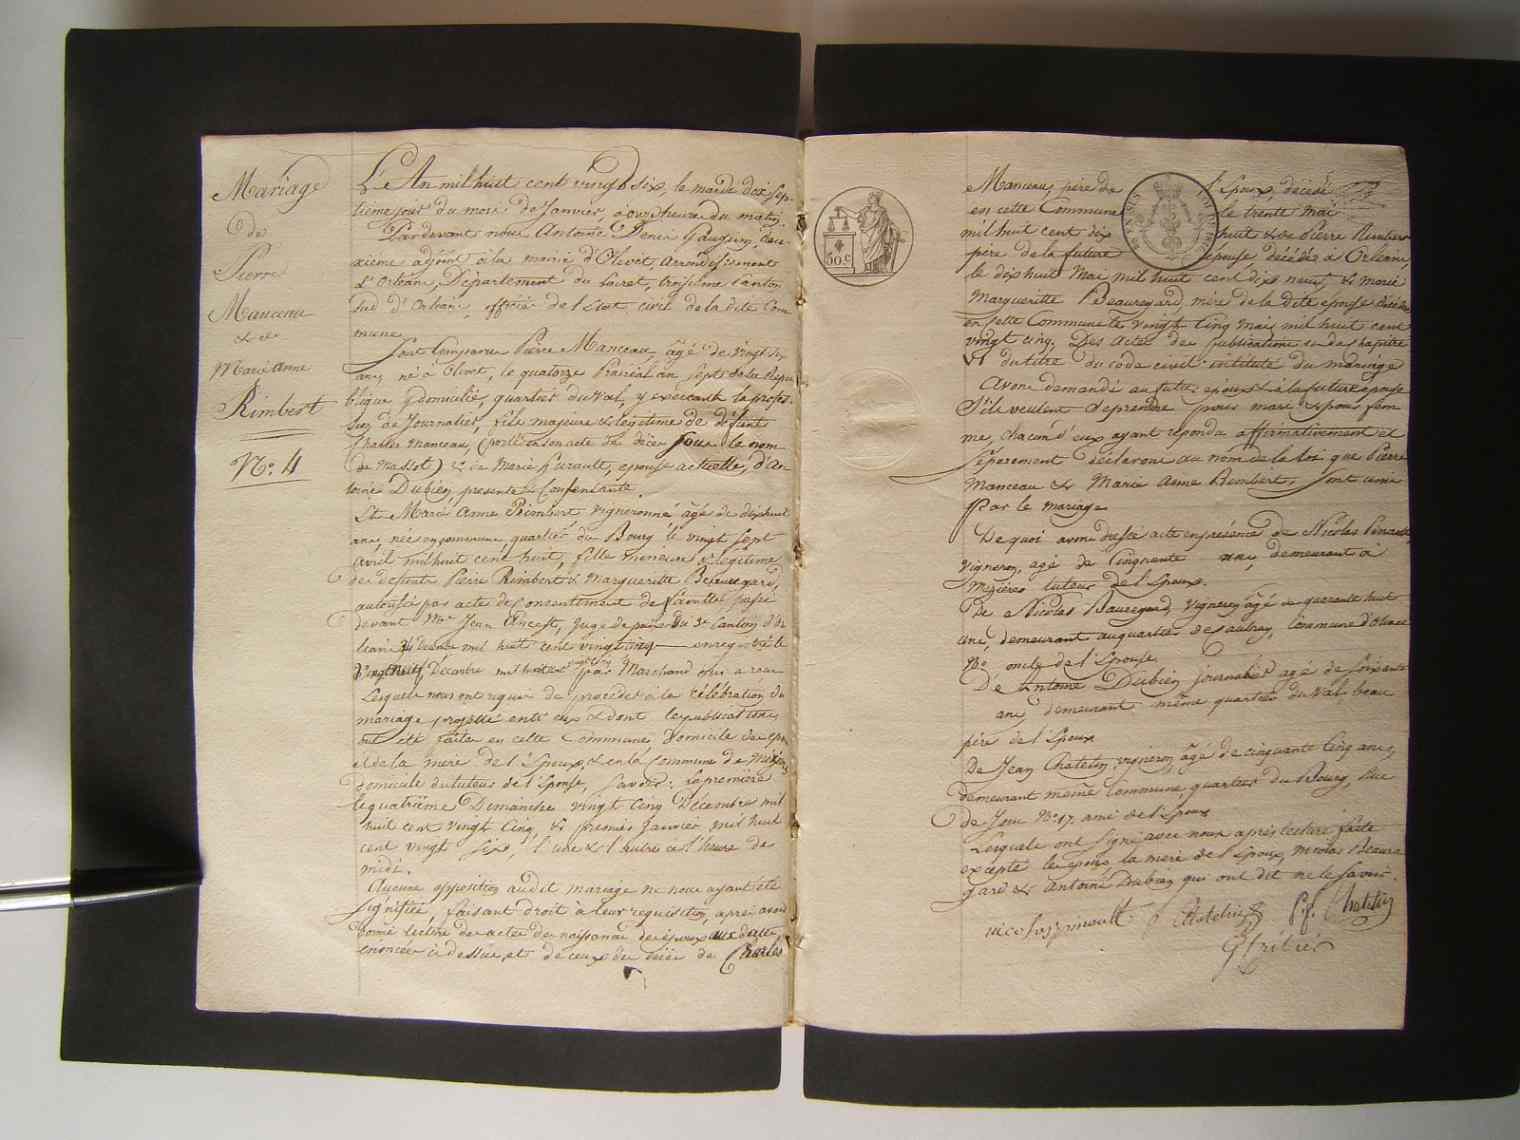 Mariage
de
Pierre
Manceau
et de
Marie Anne
Rimbert
N.o 4
L'An mil huit cent vingt six, le mardi dix sep-
tieme jour du mois de Janvier, à onze heures du matin.
Pardevant nous Antoine Denis Gauguin, deu-
xieme adjoint à la mairie d'Olivet, arrondissement
d'Orléans, Département du Loiret, troisieme Canton
sud d'Orléans, officier de l'Etat civil de la dite Com-
mune
Sont Comparus Pierre Manceau, âgé de vingt six
ans, né à Olivet, le quatorze Prairial an sept de la Répu-
blique, domicilié, quartier du Val, y exerceant la profes-
sion de Journalier, fils majeur & légitime de défunt
Charles Manceau, (porté en son acte de décès sous le nom
de Massot) & de Marie Hurault, epouse actuelle, d'An
toine Dubien, presente & Consentante.
Et Marie Anne Rimbert vigneronne âgée de dix huit
ans, née en commune, quartier du Bourg le vingt sept
avril mil huit cent huit, fille mineure & légitime
de defunts Pierre Rimbert & Margueritte Beauregard,
autorisée par acte de Consentement de famille passé
devant Mr. Jean juge de paix du 3e Canton d'Or
leans Décembre mil huit cent vingt cinq enregistré le
vingt Décembre mil huit cent par Marchand qui a reçu
Lesquels nous ont requis de procéder à la célébration du
mariage projetté entr'eux & dont les publications
ont été faites en cette Commune Domicile de
et de la mere de l'Epoux, & en la Commune de Mézières
domicile du tuteur de l'Epouse, savoir: la premiere
le quatrième Dimanche vingt Cinq Décembre mil
huit cent vingt Cinq, & premier Janvier mil huit
cent vingt six, l'une & l'autre à l'heure de
midi.
Aucune opposition audit mariage ne nous ayant été
signifiée, faisant droit à leur requisition, après avoir
donné lecture des actes de naissance des époux aux dates
enoncées ci dessus, et de ceux de décès de Charles
50 C
Manceau, père de l'Epoux, décédé
en cette Commune le trente mai
mil huit cent dix huit & de Pierre Rimbert
père de la future épouse décédé à Orléans,
le dix huit Mai mil huit cent dix neuf, & marie
Margueritte Beauregard, mère de la dite epouse décédée
en cette Commune le vingt Cinq mai, mil huit cent
vingt cinq. Des actes de publications & du chapitre
VI du titre du code civil intitulé du mariage
Avons demandé au futur epoux & à la future epouse
s'ils veulent se prendre pour mari & pour fem
me, chacun d'eux ayant répondu affirmativement et
séparement déclarons au nom de la loi que Pierre
Manceau & Marie Anne Rimbert, sont unis
Par le mariage
De quoi avons dressé acte en présence de Nicolas Pinault
vigneron, agé de Cinquante ans, demeurant à
Mézières tuteur de l'Epouse.
De Nicolas Beauregard, vigneron âgé de quarante huit
ans, demeurant au quartier de Commune d'Olivet
oncle de l'Epouse
De Antoine Dubien journalier agé de soixante
ans, demeurant, même quartier du Val, beau
père de l'Epoux
De Jean Chatelin, vigneron, âgé de cinquante Cinq ans,
demeurant meme Commune, quartier du Bourg, Rue
de Jouy No. 17. ami de l'Epoux
Lesquels ont signé avec nous après lecture faite
excepté les époux, la mere de l'Epoux, Nicolas Beaure
gard & Antoine Dubien qui ont dit ne le savoir.
nicolas pinault